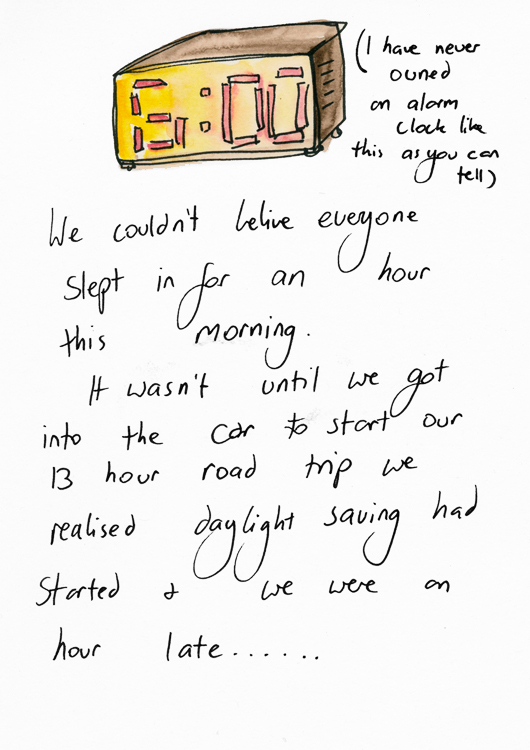 6:00
(I have never
owned
an alarm
clock like
this as you can
tell)
We couldn't belive everyone
slept in for an hour
this morning.
It wasn't until we got
into the car to start our
13 hour road trip we
realised daylight saving had
started & we were an
hour late......